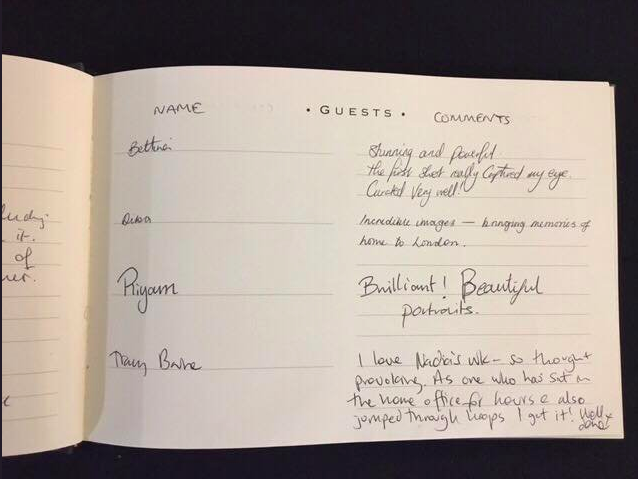 NAME
• GUESTS •
COMMENTS
Bettina
Stunning and powerful
the first shot really captured my eye.
Curated very well!
Incredible images — bringing memories of
home to London.
Riyam
Brilliant! Beautiful
portraits.
Tracy
I love Nadia's wk - so thought
provoking. As one who has sat in
the home office for hours & also
jumped through hoops I get it! Well
done
it.
of